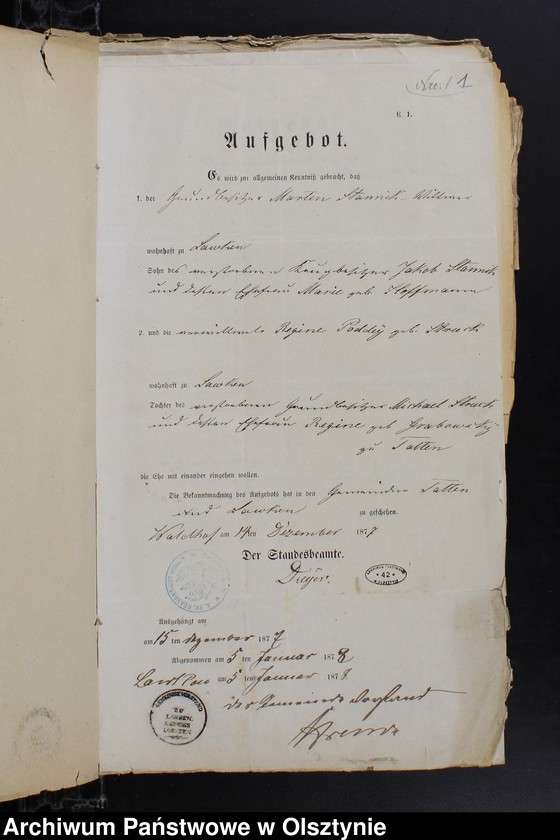 Nro. 1
E 1.
Aufgebot.
Es wird zur allgemeinen Kenntniß gebracht, daß
1. der Grundbesitzer Martin Stannick Wittwer
wohnhaft zu Lawken
Sohn des verstorbenen Krugbesitzer Jakob Stannick
und dessen Ehefrau Marie geb. Hoffmann
2. und die verwittwete Regine Poddey geb. Struck
wohnhaft zu Lawken
Tochter des verstorbenen Grundbesitzer Michael Struck
und dessen Ehefrau Regine geb Grabowsky
zu Talken
die Ehe mit einander eingehen wollen.
Die Bekanntmachung des Aufgebots hat in den Gemeinden Talken
und Lawken zu geschehen.
Waldhof am 14ten Dezember 1877
Der Standesbeamte.
ARCHIWUM PAŃSTWOWE
42
W OLSZTYNIE
Ausgehängt am
am 15 ten Dezember 1877
Abgenommen am 5 ten Januar 1878
Lawken am 5 ten Januar 1878.
der Gemeinde Vorstand
GEMEINDEVORSTAND
ZU
LAWKEN,
KREISES
LOETZEN
Archiwum Państwowe w Olsztynie